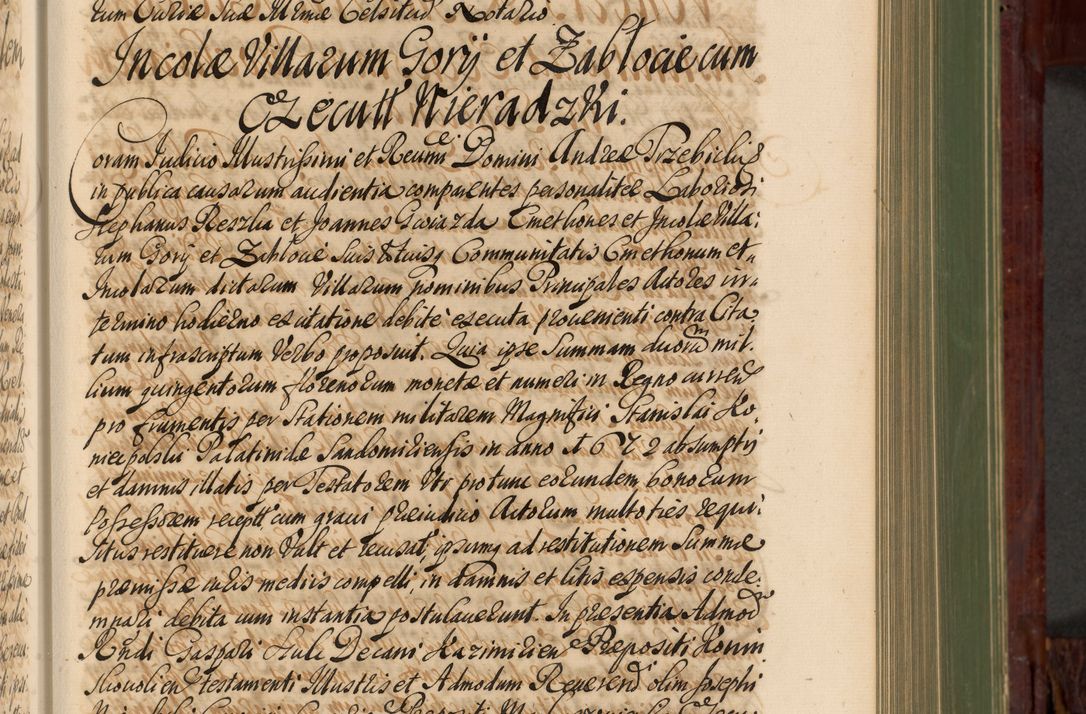 rum Curiæ Suæ Illmæ Celsitud Notario
Incolæ Villarum Gorÿ et Zablocie cum
Execut Nieradzki.
Coram Judicio Illustrissimi et Reumi Domini Andreæ Trzebicki
in publica causarum audientia comparentes personaliter Laboriosi
Stephanus Reszka et Joannes Gwiazda Cmethones et Incolæ Villa:
rum Gorÿ et Zablocie suis & Communitatis Cmethonum et
Incolarum dictarum Villarum nominibus Principales Actores in
termino hodierno ex citatione debite executa provenienti contra Cita
tum infrascriptum Verbo proposuit. Quia ipse Summam duorm mil.
lium quingentorum florenorum monetæ et numeri in Regno curren
pro frumentis per Stationem militarem Magnifici Stanislai Ko
niecpolski Palatinidæ Sandomiriensis in anno 1672 absumptis
et damnis illatis per Testatorem Uti protunc eorundem bonorum
Possessorem recept cum gravi præiudicio Actorum multoties requi:
situs restituere non Vult et recusat, ipsumq ad restitutionem Summæ
præmissæ iuris mediis compelli, in damnis et litis expensis conde
mnari debita cum instantia postulaverunt. In præsentia Admod
Rndi Gaspari Decani Kazimirien Præpositi Konin
testamenti Illustris et Admodum Reverend olim Josephi